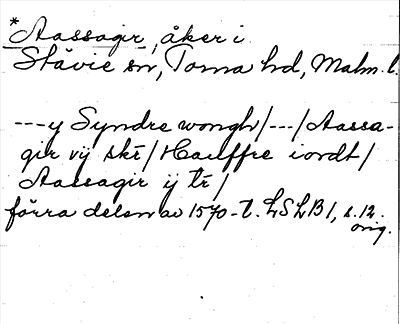 *Aassagir, åker i
Stävie sn, Torna hd, Malm. l.
---y Syndre wongh/---/Aassa-
gir vÿ skr/Hauffre iordt/
Aassagir ÿ tr/
förra delen av 1570-t. LSLB1, s.12.
orig.